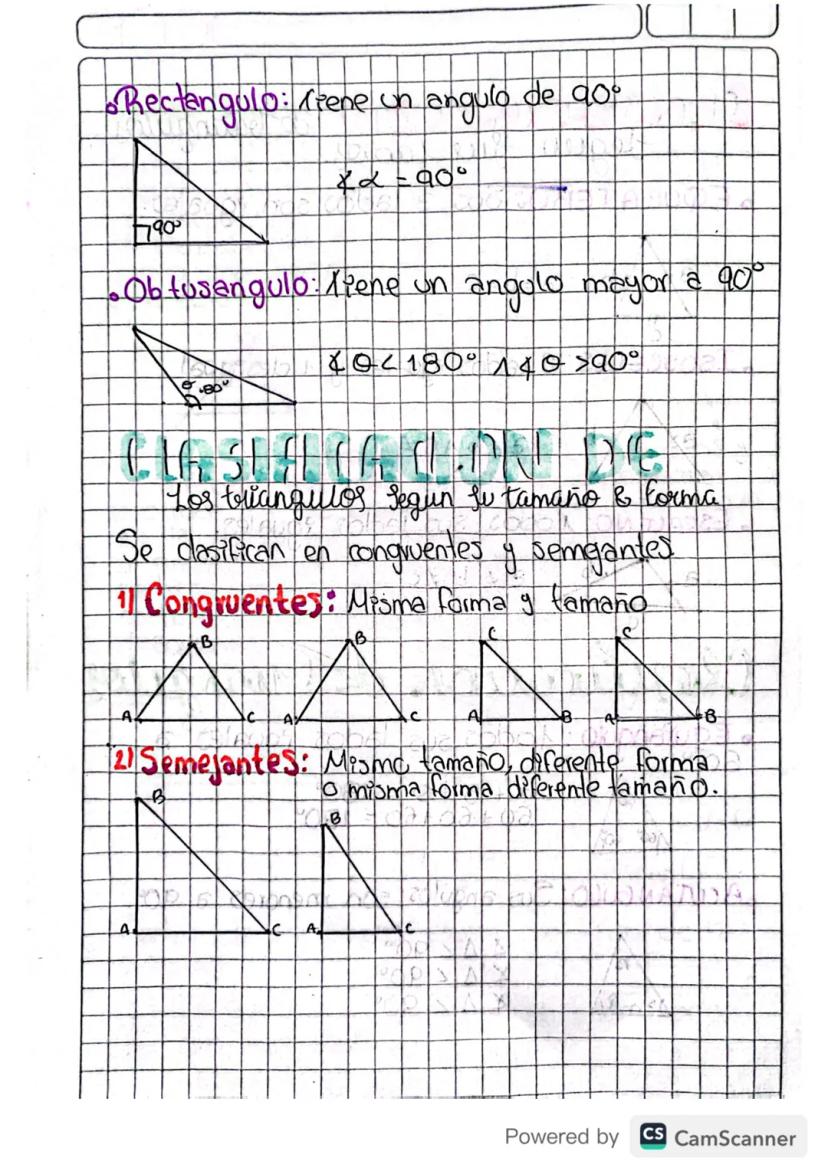 • Rectangulo: tiene un angulo de 90°
∡α = 90°
90°
• Obtusangulo: tiene un angulo mayor a 90°
θ
∡θ < 180° ∧ ∡θ > 90°
CLASIFICACION DE
Los triangulos segun su tamaño & forma
Se clasifican en congruentes y semejantes
1) Congruentes: Misma forma y tamaño
B B C C
A C A C A B A B
2) Semejantes: Mismo tamaño, diferente forma
o misma forma diferente tamaño.
B
B
A C A C
Powered by CS CamScanner